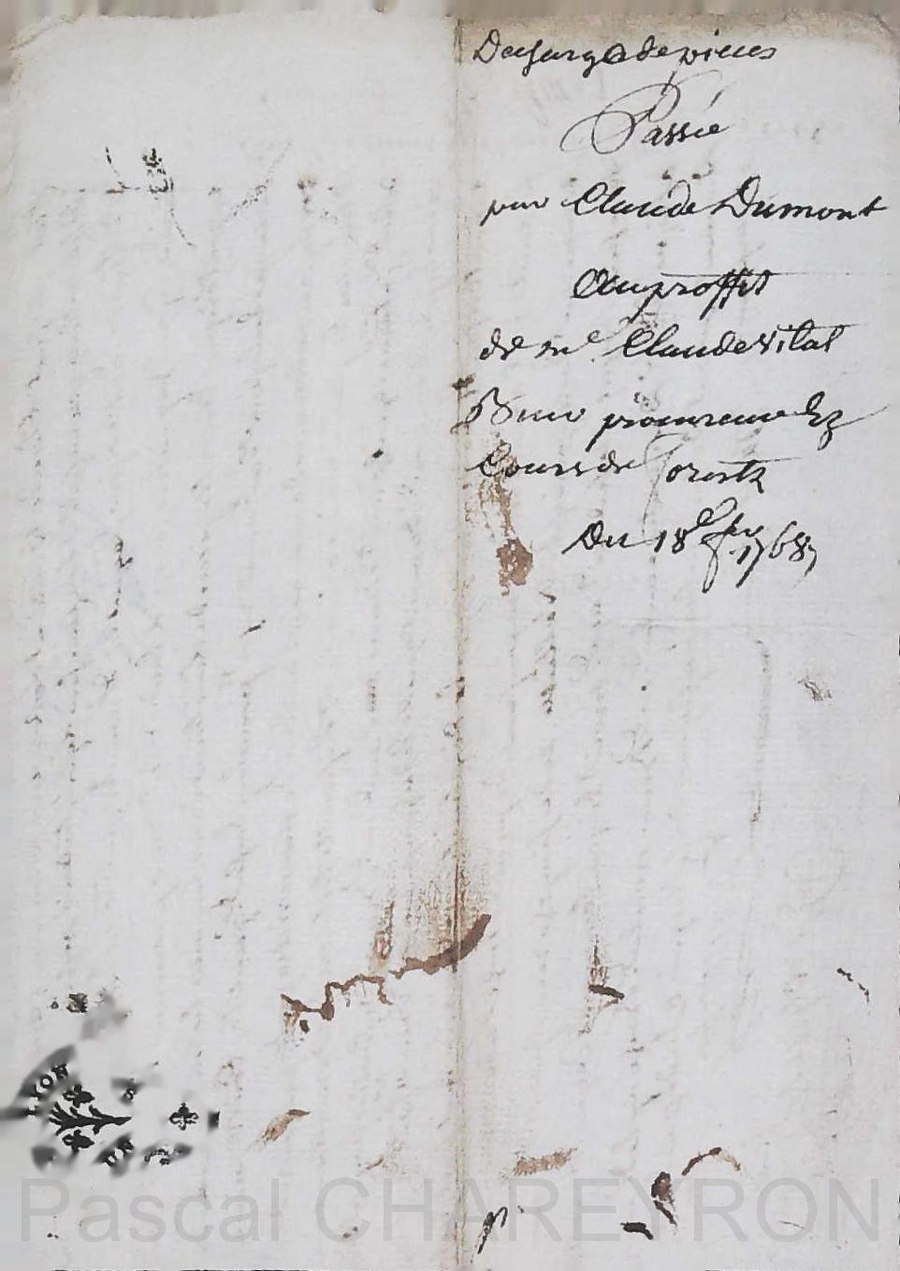 Decharge de pieces
Passée
par Claude Dumont
Au proffit
de me Claude Vital
Brun procureur Ez
Cours de forestz
Du 18e 1768
LYON
Pascal CHAREYRON